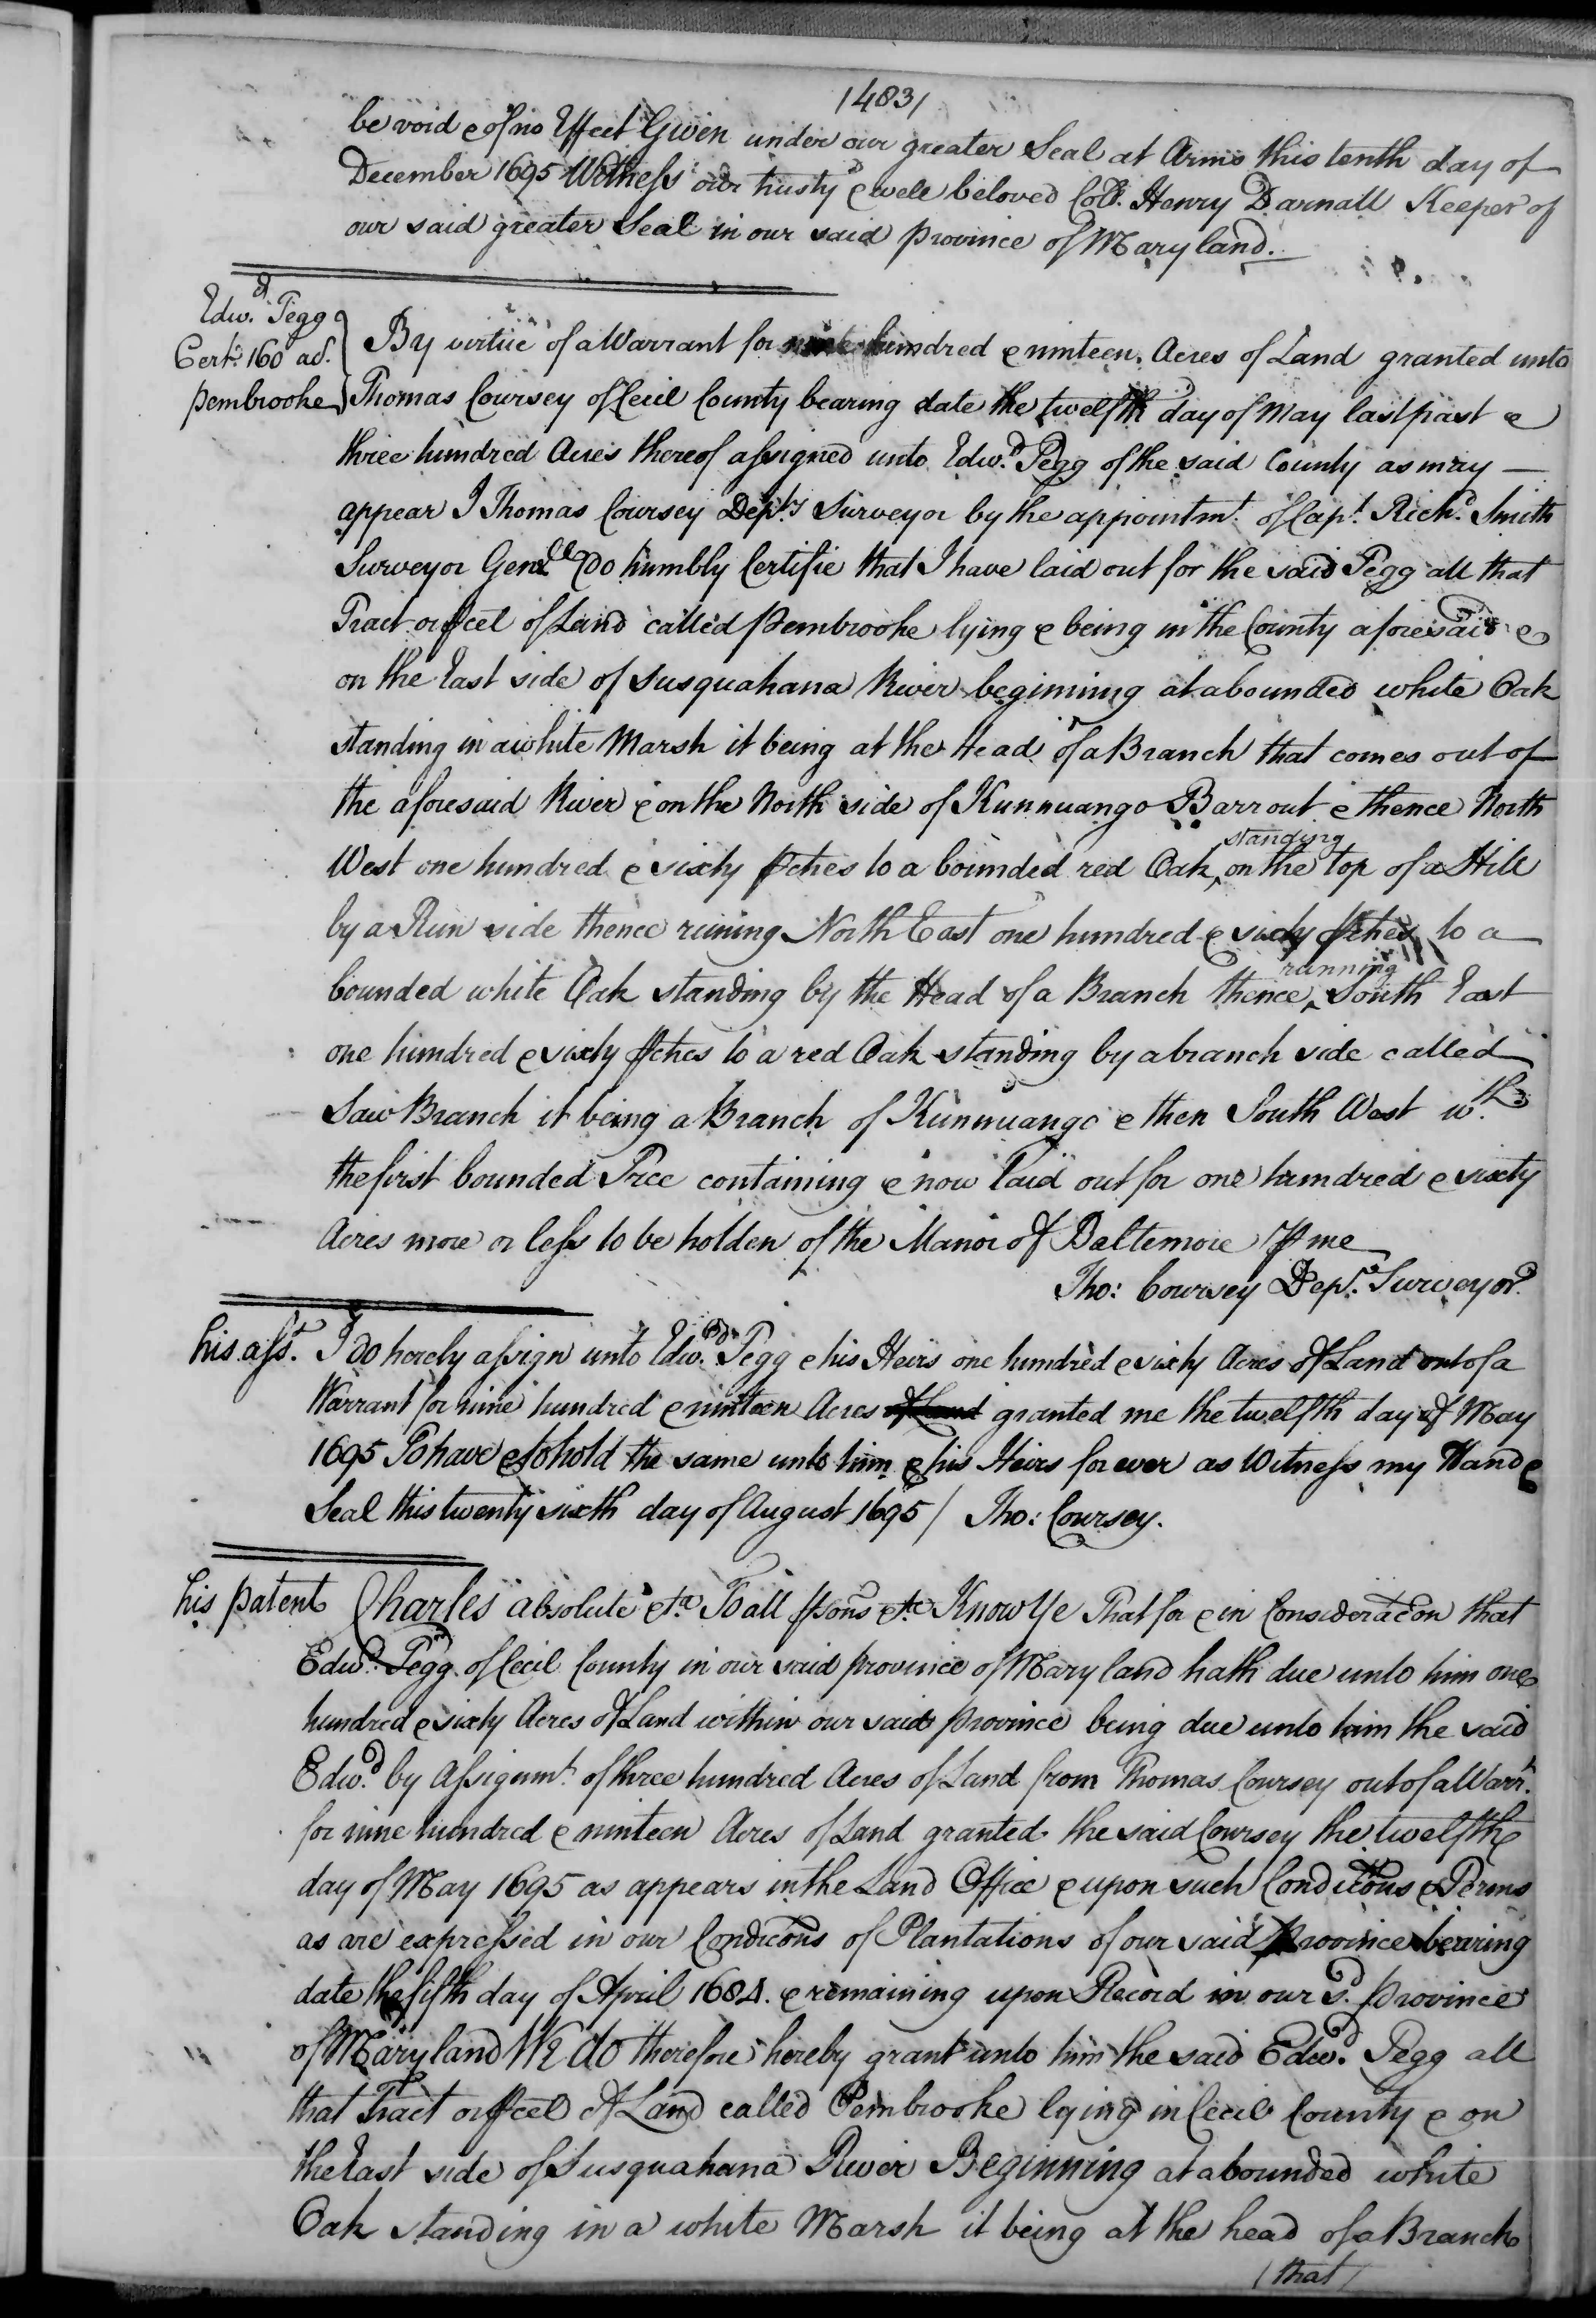 /483/
be void & of no Effect Given under our greater Seal at Arms this tenth day of
December 1695 Witness our trusty & well beloved Coll. Henry Darnall Keeper of
our said greater Seal in our said province of Maryland.
Edwd. Pegg
Cert. 160 ad.
pembrooke
By virtue of a Warrant for nine hundred & ninteen Acres of Land granted unto
Thomas Coursey of Cecil County bearing date the twelfth day of May last past &
three hundred Acres thereof assigned unto Edwd. Pegg of the said County as may —
appear I Thomas Coursey Depty Surveyor by the appointmt. of Capt. Richd. Smith
Surveyor Genll do humbly Certifie that I have laid out for the said Pegg all that
Tract or pcel of Land called pembrooke lying & being in the County aforesaid &
on the East side of Susquahana River beginning at a bounded white Oak
standing in a white Marsh it being at the Head of a Branch that comes out of
the aforesaid River & on the North side of Kunnuango Barrout & thence North
West one hundred & sixty pches to a bounded red Oak ^standing on the top of a Hill
by a Run side thence runing North East one hundred & sixty pches to a
bounded white Oak standing by the Head of a Branch thence ^running South East
one hundred & sixty pches to a red Oak standing by a branch side called
Saw Branch it being a Branch of Kunnuango & then South West wth.
the first bounded Tree containing & now laid out for one hundred & sixty
Acres more or less to be holden of the Manor of Baltemore p me
Tho: Coursey Depty. Surveyor.
his asst. I do hereby assign unto Edwd. Pegg & his Heirs one hundred & sixty Acres of Land out of a
Warrant for nine hundred & ninteen Acres of Land granted me the twelfth day of May
1695 To have & to hold the same unto him & his Heirs for ever as Witness my Hand &
Seal this twenty sixth day of August 1695 / Tho: Coursey.
his patent Charles absolute &ca. To all psons &ca Know Ye That for & in Consideracon that
Edwd. Pegg of Cecil County in our said province of Maryland hath due unto him one
hundred & sixty Acres of Land within our said province being due unto him the said
Edwd. by Assignmt. of three hundred Acres of Land from Thomas Coursey out of a Warrt.
for nine hundred & ninteen Acres of Land granted the said Coursey the twelfth
day of May 1695 as appears in the Land Office & upon such Conditons & Terms
as are expressed in our Condicons of Plantations of our said province bearing
date the fifth day of April 1684. & remaining upon Record in our sd. province
of Maryland We do therefore hereby grant unto him the said Edwd. Pegg all
that Tract or pcel of Land called Pembrooke lying in Cecil County & on
the East side of Susquahana River Beginning at a bounded white
Oak standing in a white Marsh it being at the head of a Branch
/ that /